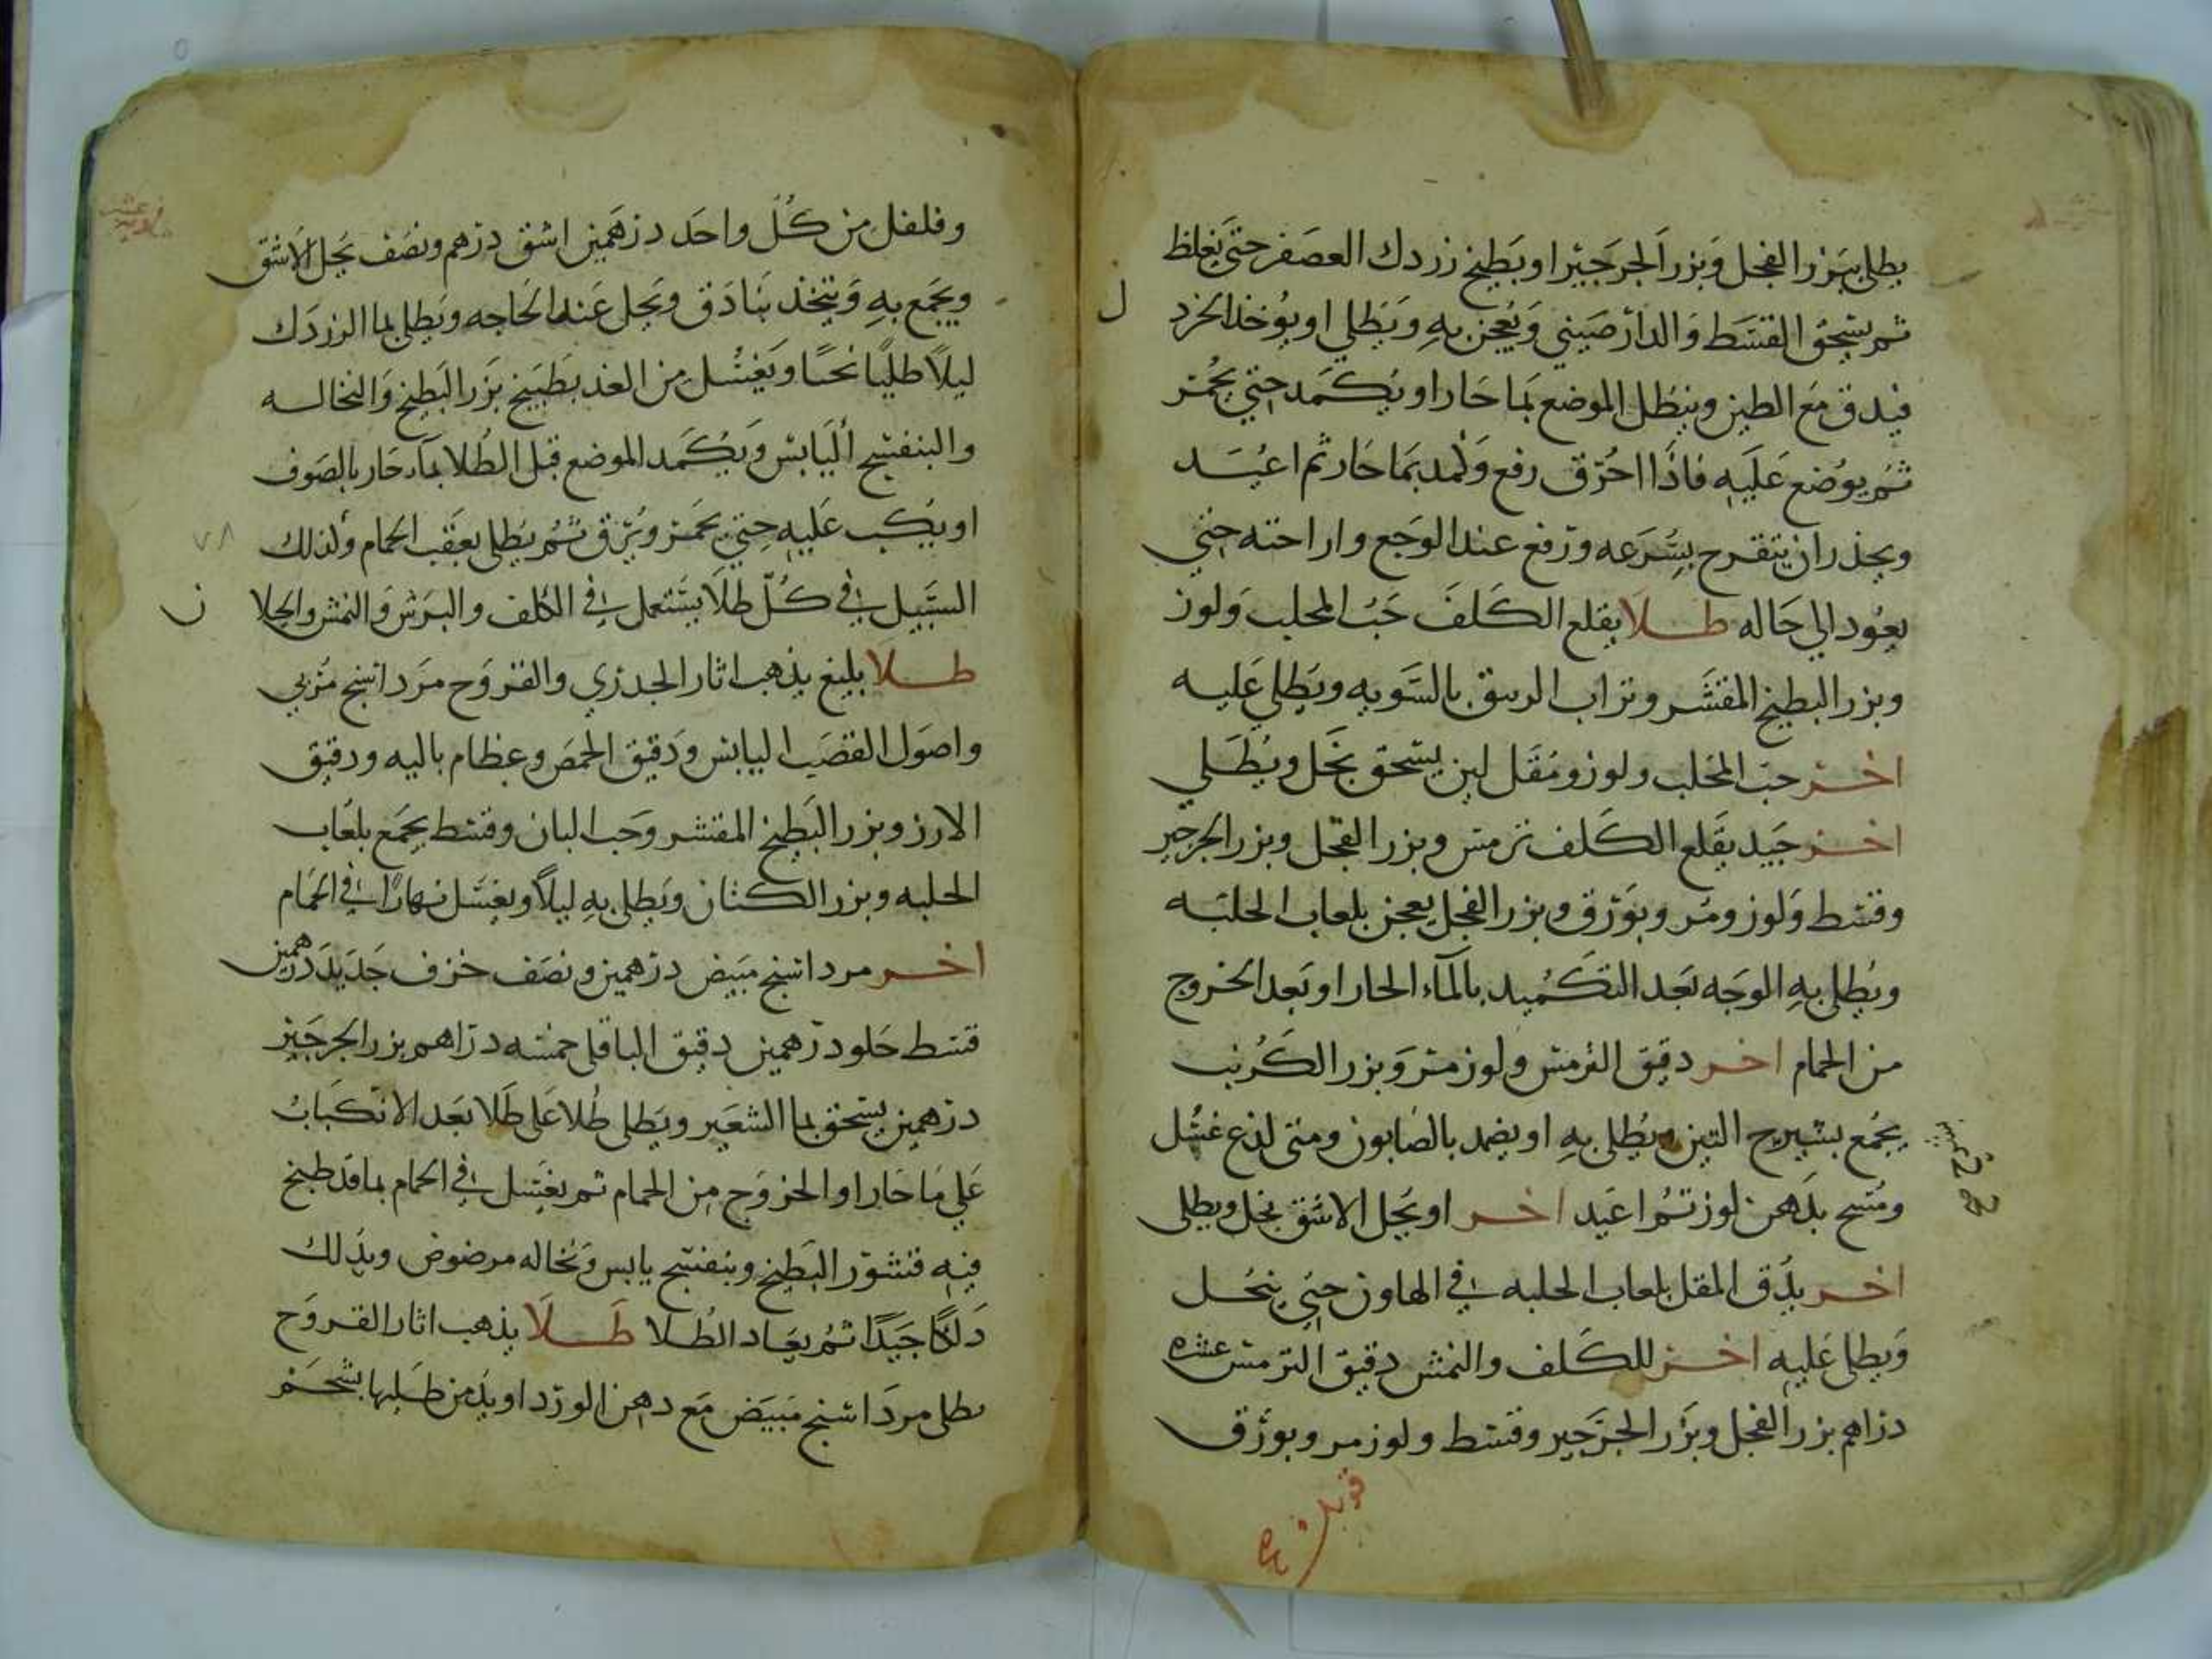 يطلى ببزر الفجل وبزر الجرجير او بطبيخ زردك العصفر حتى يغلظ
ثم يسحق القسط والدارصيني ويعجن به ويطلى او يوخذ الخرد
فيدق مع الطين وينطل الموضع بما حار او يكمد حتى يحمر
ثم يوضع عليه فاذا احرق رفع وكمد بما حار ثم اعيد
ويحذر ان يتقرح بسرعه وترفع عند الوجع واراحته حتى
يعود الى حاله طلا يقلع الكلف حب المحلب ولوز
وبزر البطيخ المقشر وتراب الريبق بالسويه ويطلى عليه
اخر حب المحلب ولوز ومقل لين يسحق بخل ويطلى
اخر جيد يقلع الكلف ترمس وبزر الفجل وبزر الجرجير
وقسط ولوز ومر وبورق وبزر الفجل يعجن بلعاب الحلبه
ويطلى به الوجه بعد التكميد بالماء الحار او بعد الخروج
من الحمام اخر دقيق الترمس ولوز مر وبزر الكرنب
يجمع بشيرج التين ويطلى به او يضمد بالصابون ومتى لذع غسل
ومسح بدهن لوز ثم اعيد اخر او يحل الاشق بخل ويطلى
اخر يدق المقل بلعاب الحلبه في الهاون حتى ينحل
ويطلى عليه اخر للكلف والنمش دقيق الترمس عشره
دراهم بزر الفجل وبزر الجرجير وقسط ولوز مر وبورق
قوبل
وفلفل من كل واحد درهمين اشق درهم ونصف يحل الاشق
ويجمع به ويتخذ بنادق ويحل عند الحاجه ويطلى بما الزردك
ليلا طليا نحسا ويغسل من الغد بطبيخ بزر البطيخ والنخاله
والبنفسج اليابس ويكمد الموضع قبل الطلا بماء حار بالصوف
او يكب عليه حتى يحمر ويرق ثم يطلى بعقب الحمام وكذلك
السبيل في كل طلا يستعمل في الكلف والبرش والنمش والجلا
طلا بليغ يذهب اثار الجدري والقروح مرداسنج مربي
واصول القصب اليابس ودقيق الحمص وعظام باليه ودقيق
الارز وبزر البطيخ المقشر وحب البان وقسط يجمع بلعاب
الحلبه وبزر الكتان ويطلى به ليلا ويغسل نهارا في الحمام
اخر مرداسنج مبيض درهمين ونصف خزف جديد درهمين
قسط حلو درهمين دقيق الباقلى خمسه دراهم بزر الجرجير
درهمين يسحق بما الشعير ويطلى طلا على طلا بعد الانكباب
على ما حار او الخروج من الحمام ثم يغسل في الحمام بما قد طبخ
فيه قشور البطيخ وبنفسج يابس ونخاله مرضوض ويدلك
دلكا جيدا ثم يعاد الطلا طلا يذهب اثار القروح
يطلى مرداسنج مبيض مع دهن الورد او يدمن طليها بشحم
٧٨